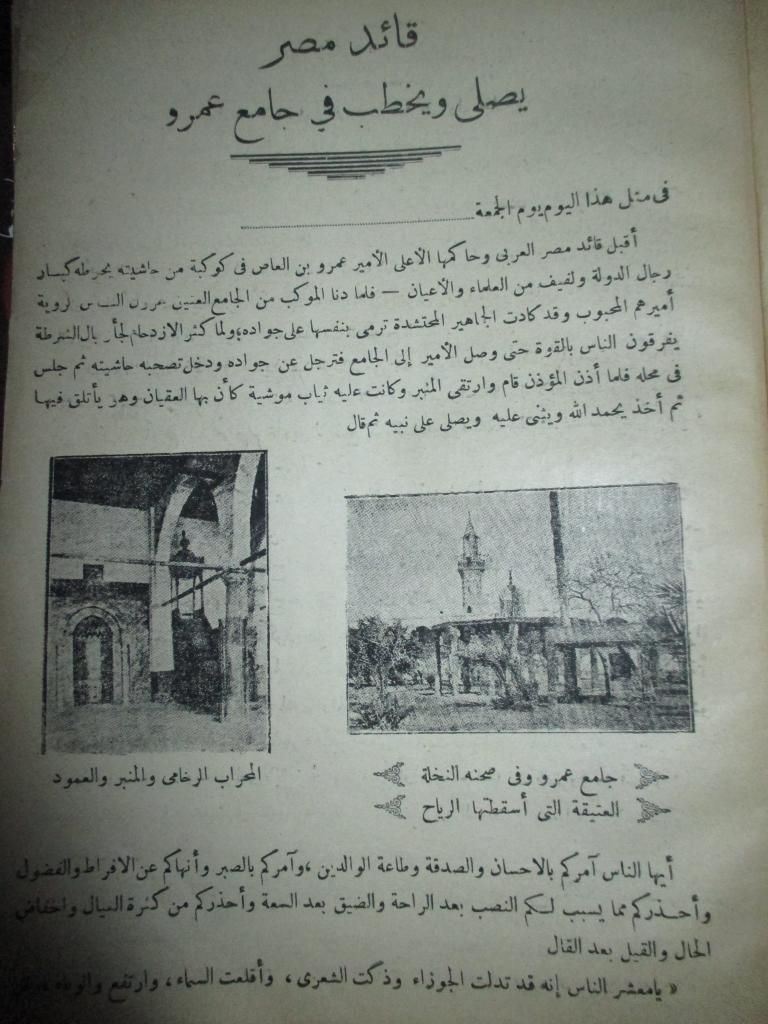 قائد مصر
يصلى ويخطب في جامع عمرو
فى مثل هذا اليوم يوم الجمعة
أقبل قائد مصر العربى وحاكمها الأعلى الأمير عمرو بن العاص فى كوكبة من حاشيته يحوطه كبار
رجال الدولة ولفيف من العلماء والأعيان — فلما دنا الموكب من الجامع العتيق الناس لروية
أميرهم المحبوب وقد كادت الجماهير المحتشدة ترمى بنفسها على جواده ولما كثر الازدحام رجال الشرطة
يفرقون الناس بالقوة حتى وصل الأمير إلى الجامع فترجل عن جواده ودخل تصحبه حاشيته ثم جلس
فى محله فلما أذن المؤذن قام وارتقى المنبر وكانت عليه ثياب موشية كأن بها العقيان وهو يأتلق فيها
ثم أخذ يحمد الله ويثنى عليه ويصلى على نبيه ثم قال
جامع عمرو وفى صحنه النخلة
العتيقة التى أسقطتها الرياح
المحراب الرخامى والمنبر والعمود
أيها الناس آمركم بالاحسان والصدقة وطاعة الوالدين ، وآمركم بالصبر وأنهاكم عن الافراط والفضول
وأحذركم مما يسبب لكم النصب بعد الراحة والضيق بعد السعة وأحذركم من كثرة العيال واخفاض
الحال والقيل بعد القال
« يامعشر الناس إنه قد تدلت الجوزاء وذكت الشعرى ، وأقلعت السماء ، وارتفع الوباء